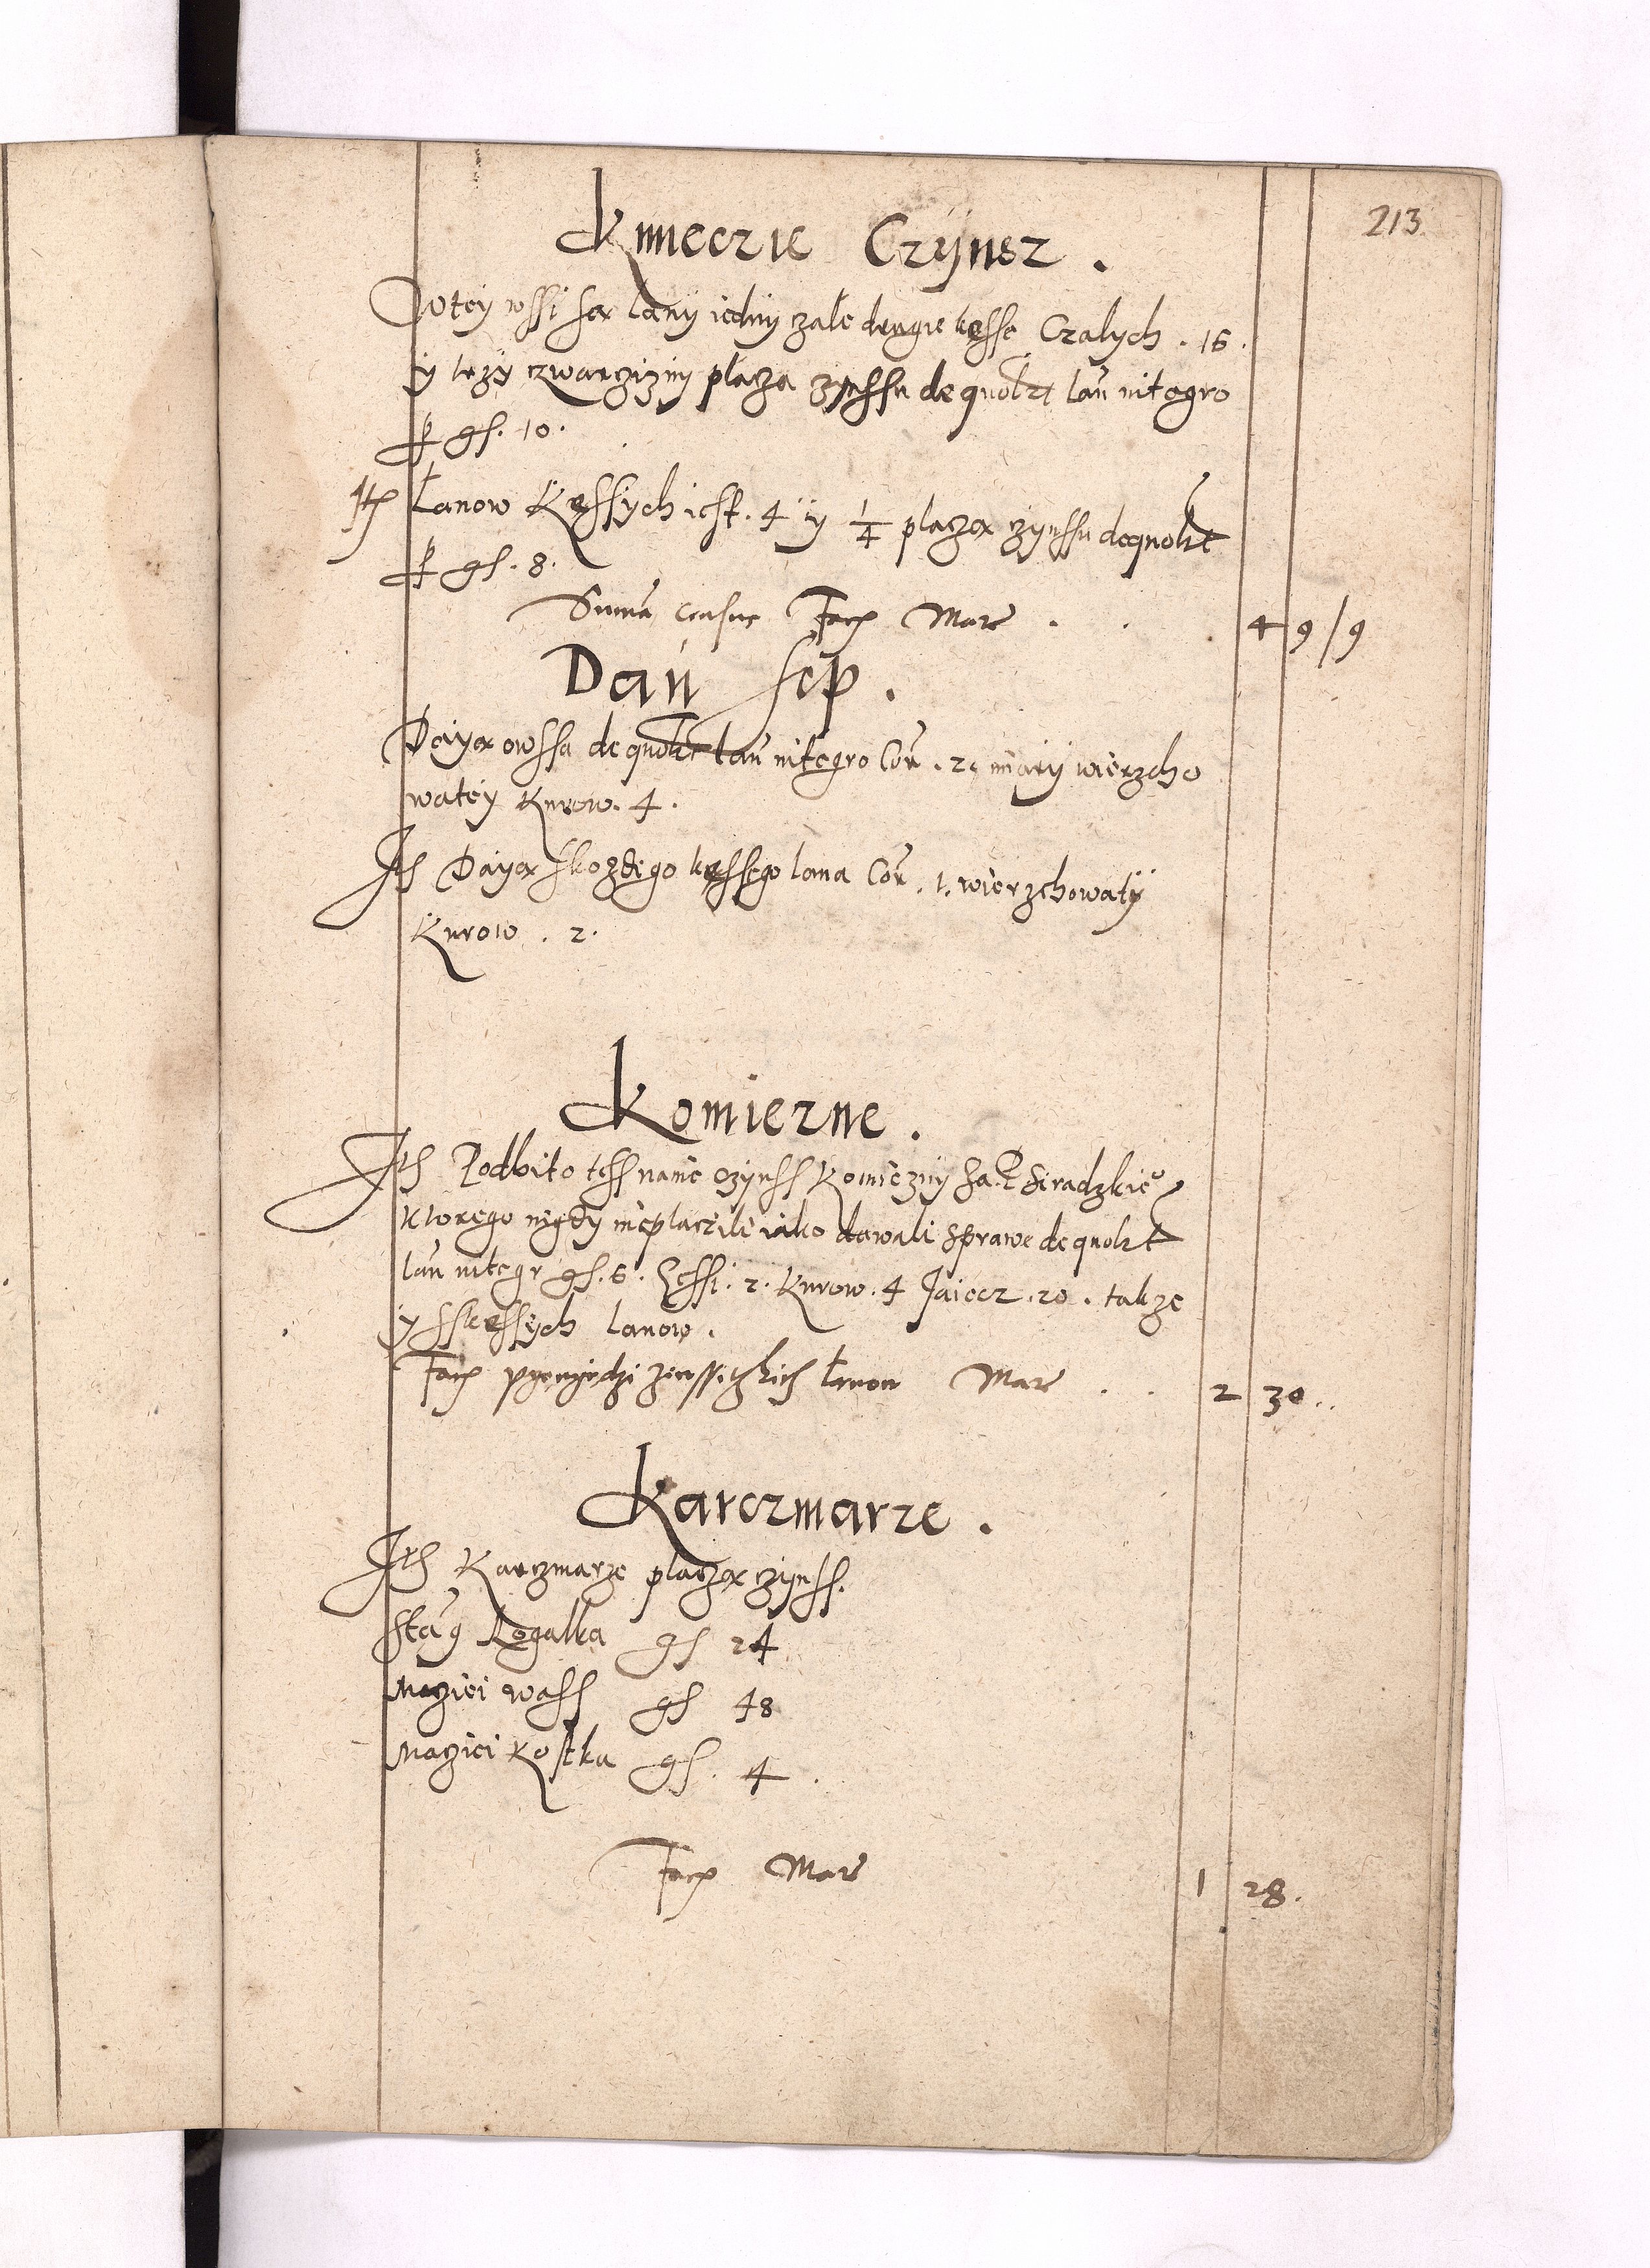 213
Kmieczie Czÿnsz .
Wtey wssi są lany iedny czale drugie kęsse Czalych . 16 .
ÿ trzÿ czwarczizny placza czynssu de quolzt lan̄ integro
p gs. 10 .
Itē Łanow Kęssych iest . 4 ÿ 1/4 placzą czynssu dequolzt
p gs . 8 .
Sum̄a census Facz Marc . . 4 9/9
Dań sep .
Dayą owssa de quolzt lan̄ integro Cor̄ . 2 miary wierzcho
watey Kurow . 4 .
Itē Dayą skozdego kęssego lana Cor̄ . 1 . wierzchowatÿ
Kurow . 2 .
Komierne .
Itē Podbito tess na nie czynss Komiezny Siradzkie
ktorego nigdy nieplaczili iako dawali sprawe de quolzt
lan̄ integr gs . 6 . Gessi . 2 . Kurow . 4 Jaiecz . 20 . takze
y skęssych lanow .
Facz pyenyedzi Łanow Marc . . 2 30 ..
Karczmarze .
Itē Karczmarze placzą czynss .
Sta͞n Rogalka gs 24
Macziei wass gs 48
Macziei Kostka gs . 4 .
Facz Marc 1 28 .